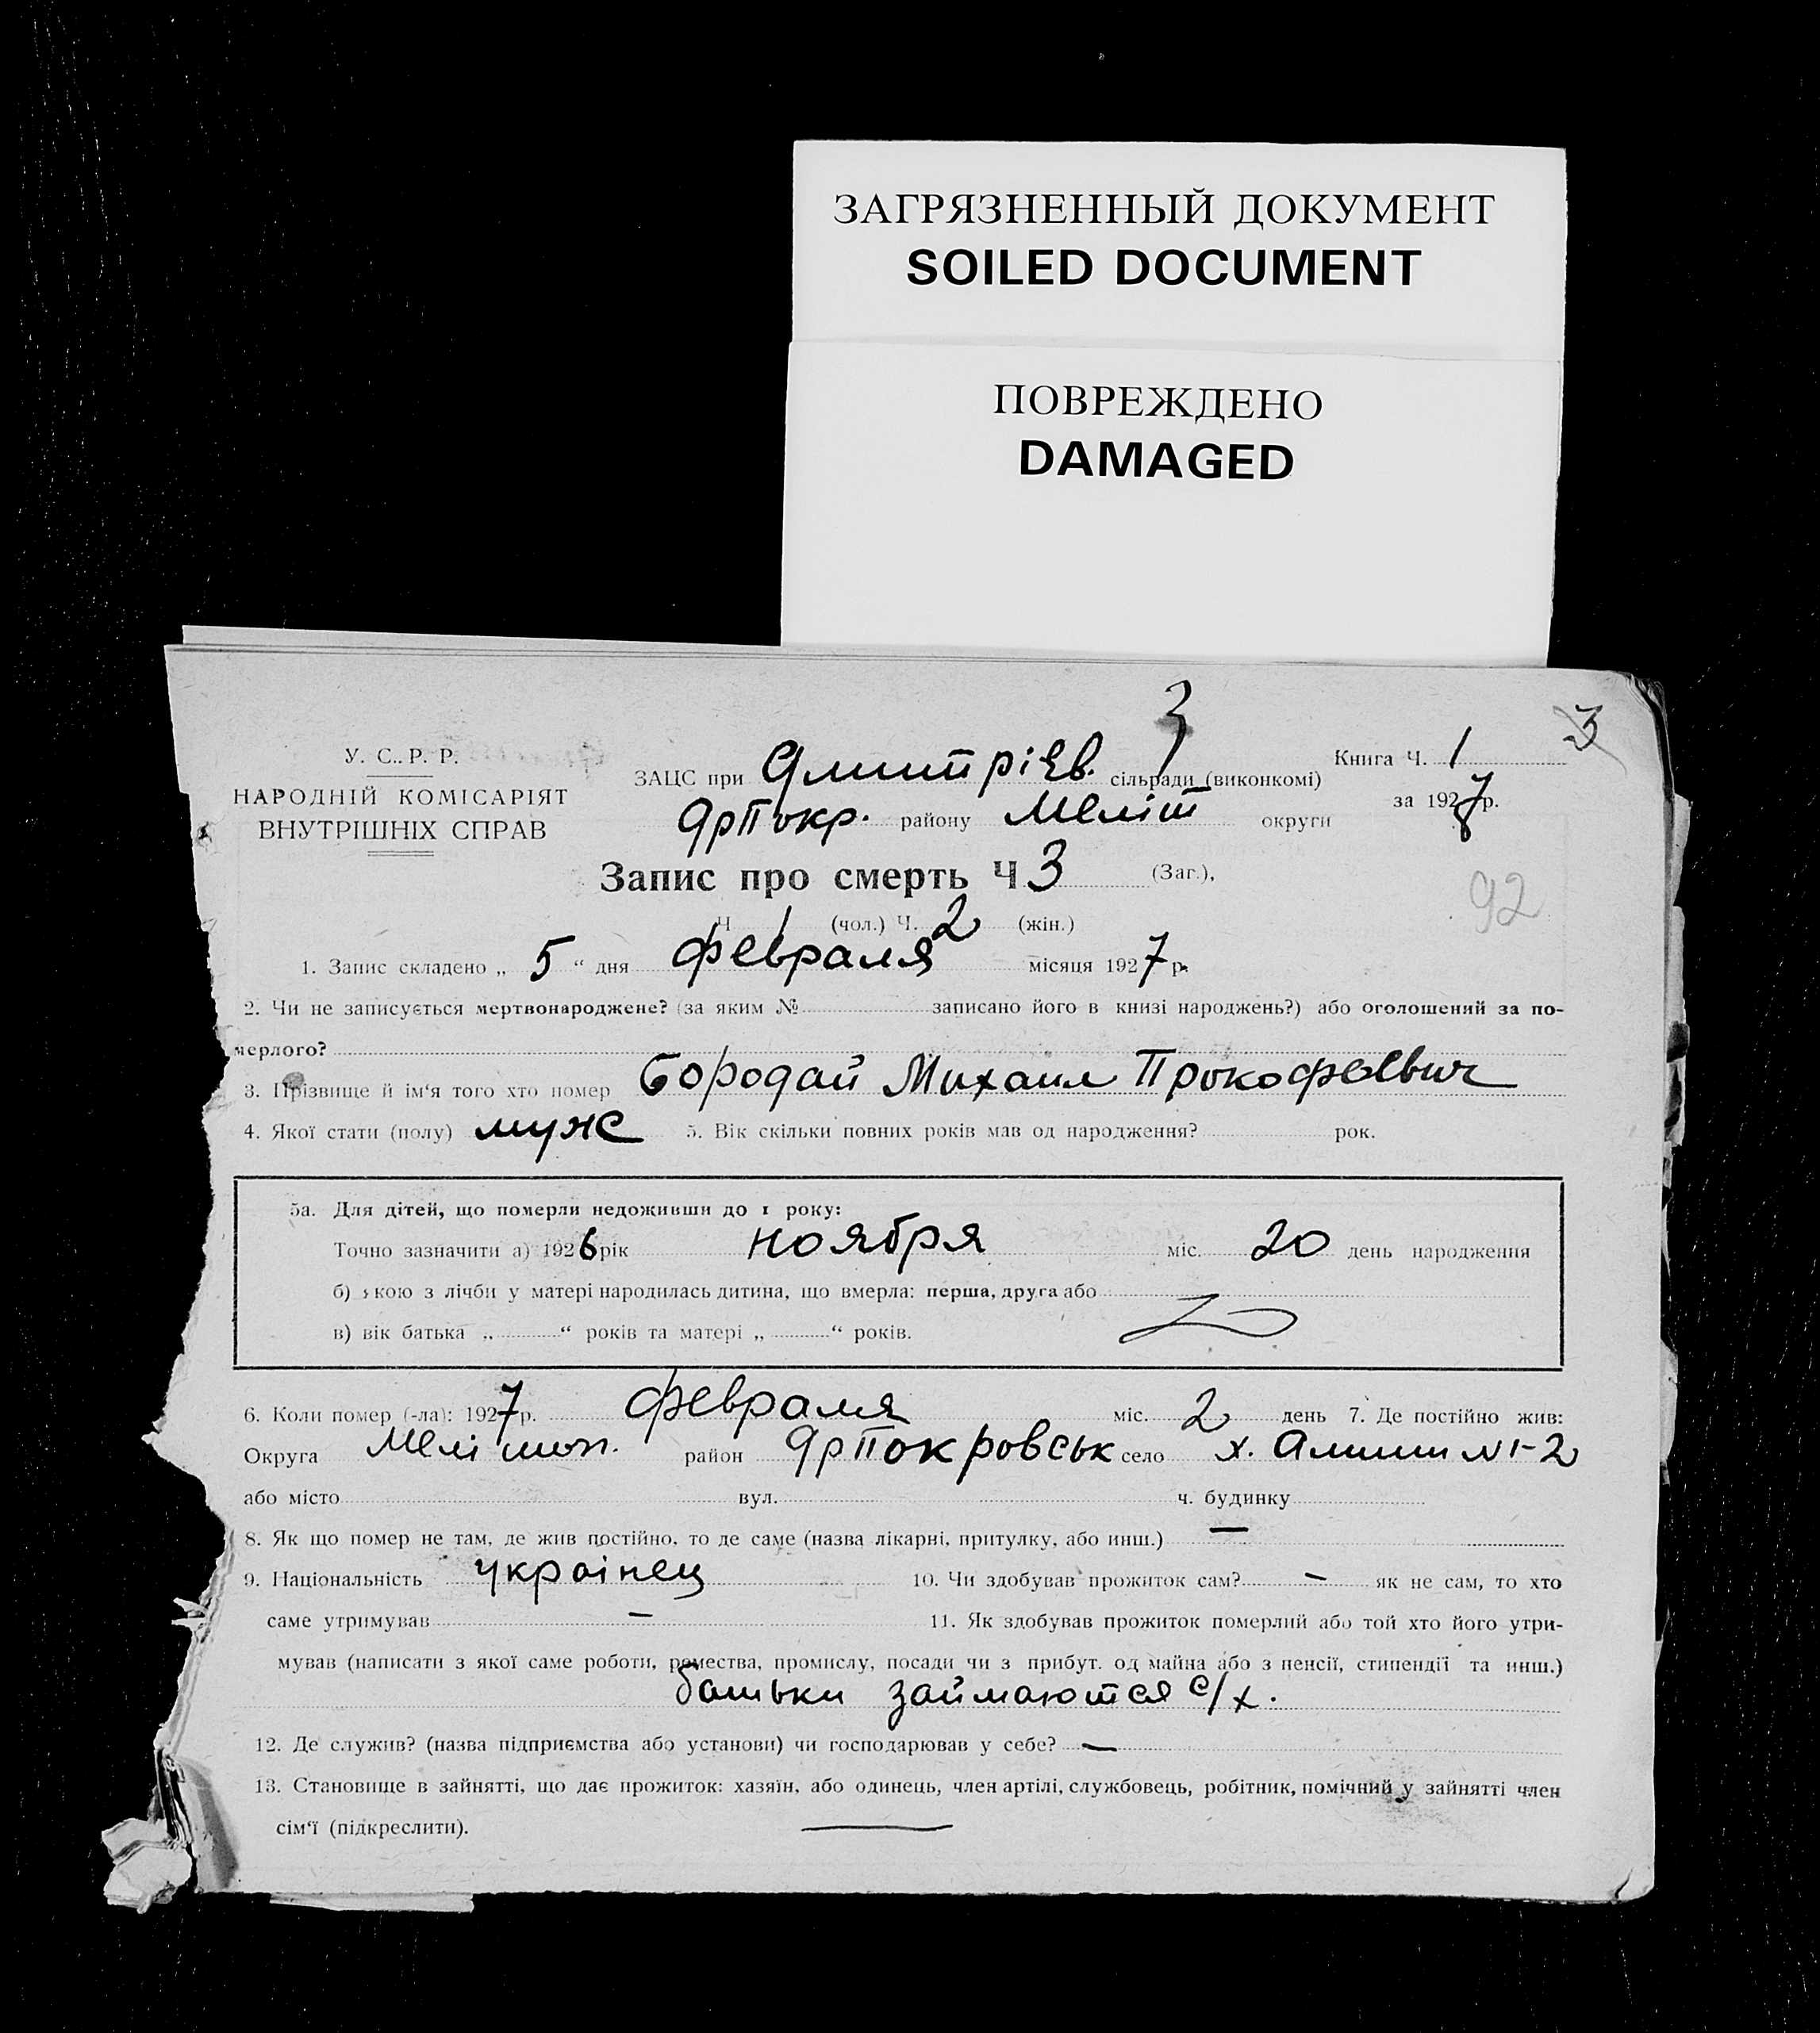 ЗАГРЯЗНЕННЫЙ ДОКУМЕНТ
SOILED DOCUMENT
ПОВРЕЖДЕНО
DAMAGED
3
3
У. С. Р. Р.
НАРОДНІЙ КОМІСАРІЯТ
ВНУТРІШНІХ СПРАВ
ЗАЦС при Дмитріев. сільради (виконкомі)
ДрПокр. району Меліт округи
Книга Ч. 1
за 1927 р.
Запис про смерть Ч 3 (Заг.),
92
Ч 1 (чол.) Ч. 2 (жін.)
1. Запис складено „ 5 “ дня февраля місяця 1927 р.
2. Чи не записується мертвонароджене? (за яким № записано його в книзі народжень?) або оголошений за по-
мерлого?
3. Прізвище й ім‘я того хто помер Бородай Михаил Прокофеевич
4. Якої стати (полу) муж 5. Вік скільки повних років мав од народження? рок.
5а. Для дітей, що померли недоживши до 1 року:
Точно зазначити а) 1926 рік ноября міс. 20 день народження
б) якою з лічби у матері народилась дитина, що вмерла: перша, друга або
в) вік батька „ “ років та матері „ “ років.
6. Коли помер (-ла): 1927 р. февраля міс. 2 день 7. Де постійно жив:
Округа Мелітоп. район ДрПокровськ село х. №1-2
або місто вул. ч. будинку
8. Як що помер не там, де жив постійно, то де саме (назва лікарні, притулку, або инш.) —
9. Національність українец 10. Чи здобував прожиток сам? — як не сам, то хто
саме утримував — 11. Як здобував прожиток померлий або той хто його утри-
мував (написати з якої саме роботи, ремества, промислу, посади чи з прибут. од майна або з пенсії, стипендії та инш.)
батьки займаются с/х.
12. Де служив? (назва підприємства або установи) чи господарював у себе? —
13. Становище в зайнятті, що дає прожиток: хазяїн, або одинець, член артілі, службовець, робітник, помічний у зайнятті член
сім‘ї (підкреслити). —